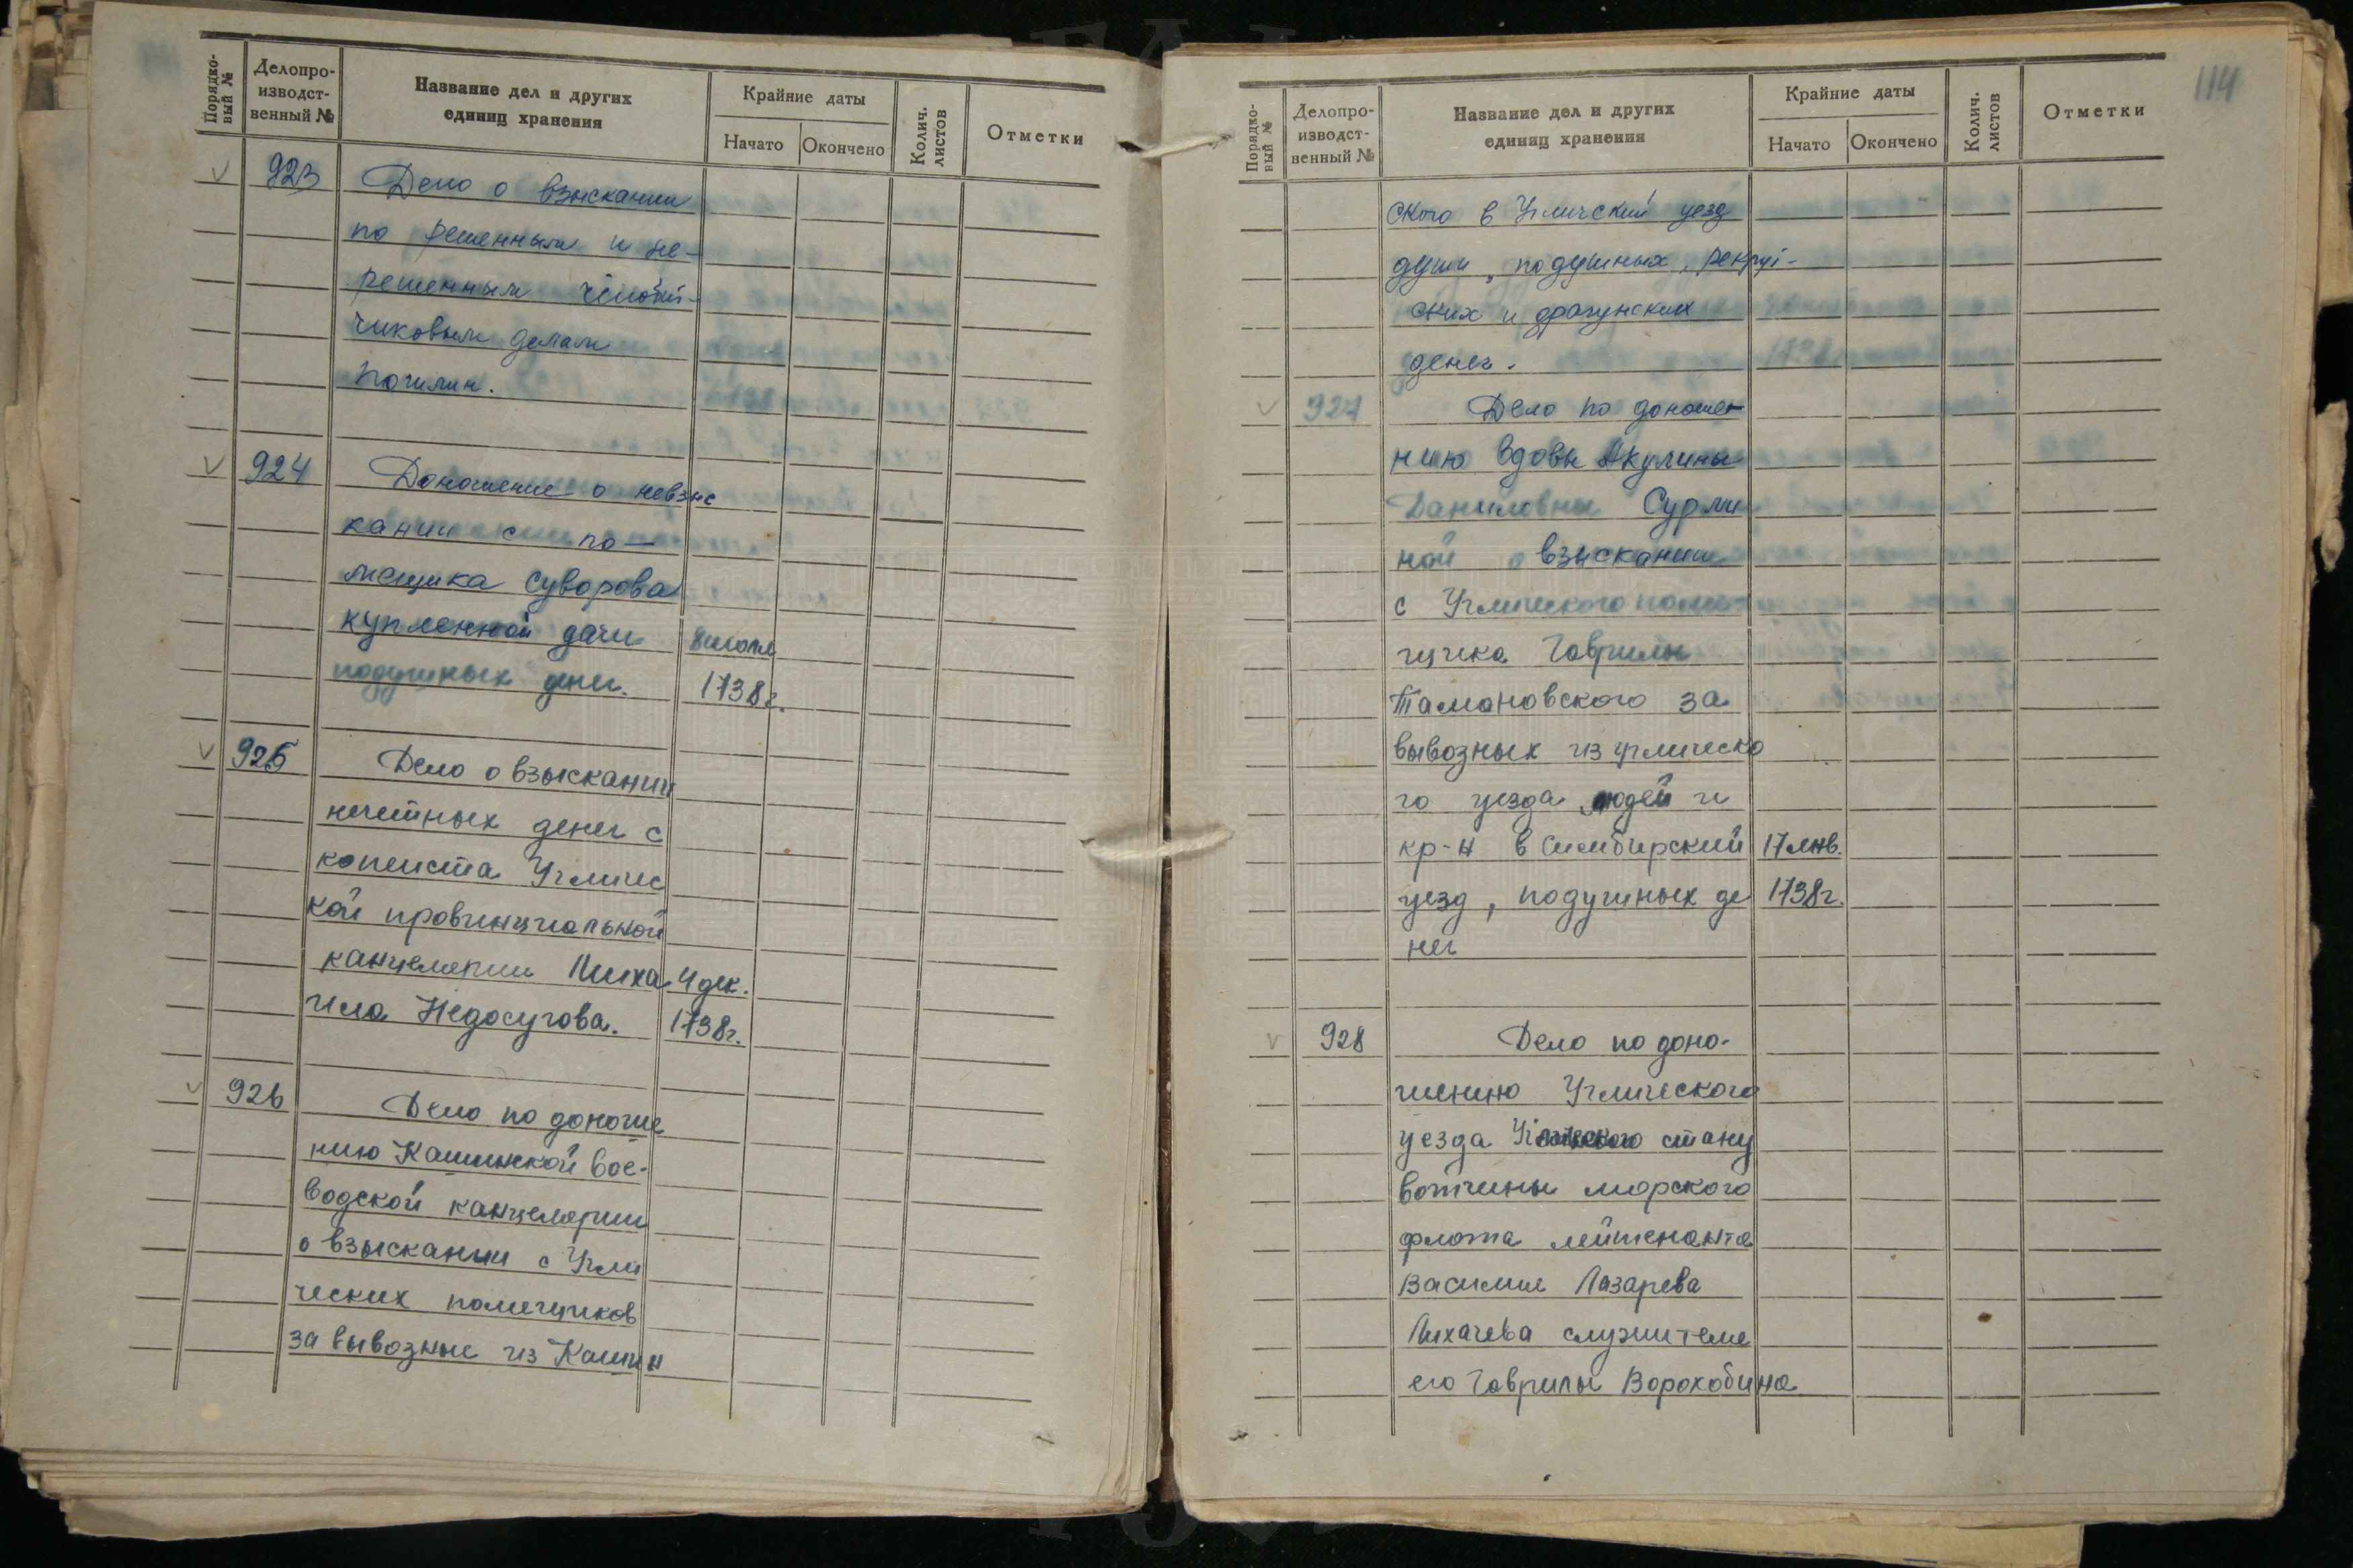 Порядко-
вый №
Делопро-
изводст-
венный №
Название дел и других
единиц хранения
Крайние даты
Начато
Окончено
Колич.
листов
Отметки
923
Дело о взыскании
по решенным и не-
решенным челобит-
чиковым делам
пошлин.
924
Доношение о невзыс
кании с по-
мещика Суворова
купленной дачи
8 июля
подушных денег.
1738г.
925
Дело о взыскании
нечетных денег с
копеиста Угличес
кой провинциальной
канцелярии Миха
4 дек.
ила Недосугова.
1738г.
926
Дело по доноше
нию Кашинской вое-
водской канцелярии
о взыскании с Угли
ческих помещиков
за вывозные из Кашин
114
Порядко-
вый №
Делопро-
изводст-
венный №
Название дел и других
единиц хранения
Крайние даты
Начато
Окончено
Колич.
листов
Отметки
ского в Угличский уезд
души, подушных, рекрут-
ских и драгунских
денег.
927
Дело по доноше-
нию вдовы Акулины
Даниловны Сурми
ной о взыскании
с Углического поме
щика Гаврилы
Тамановского за
вывозных из углическо
го уезда людей и
кр-н в Симбирский
17 янв.
уезд, подушных де
1738г.
нег
928
Дело по доно-
шению Углического
уезда стану
вотчины морского
флота лейтенанта
Василия Лазарева
Лихачева служителя
его Гаврилы Ворохобина